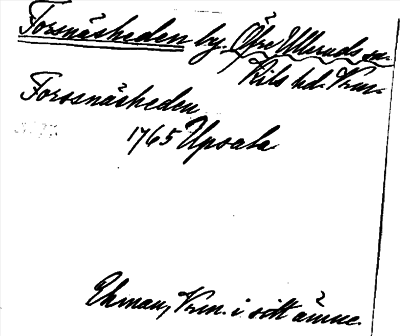 Forsnäsheden by. Övre Ulleruds sn.
Kils hd. Vrm.
Forssnäsheden
1765 Upsala
Ekman, Vrm. i sitt ämne.